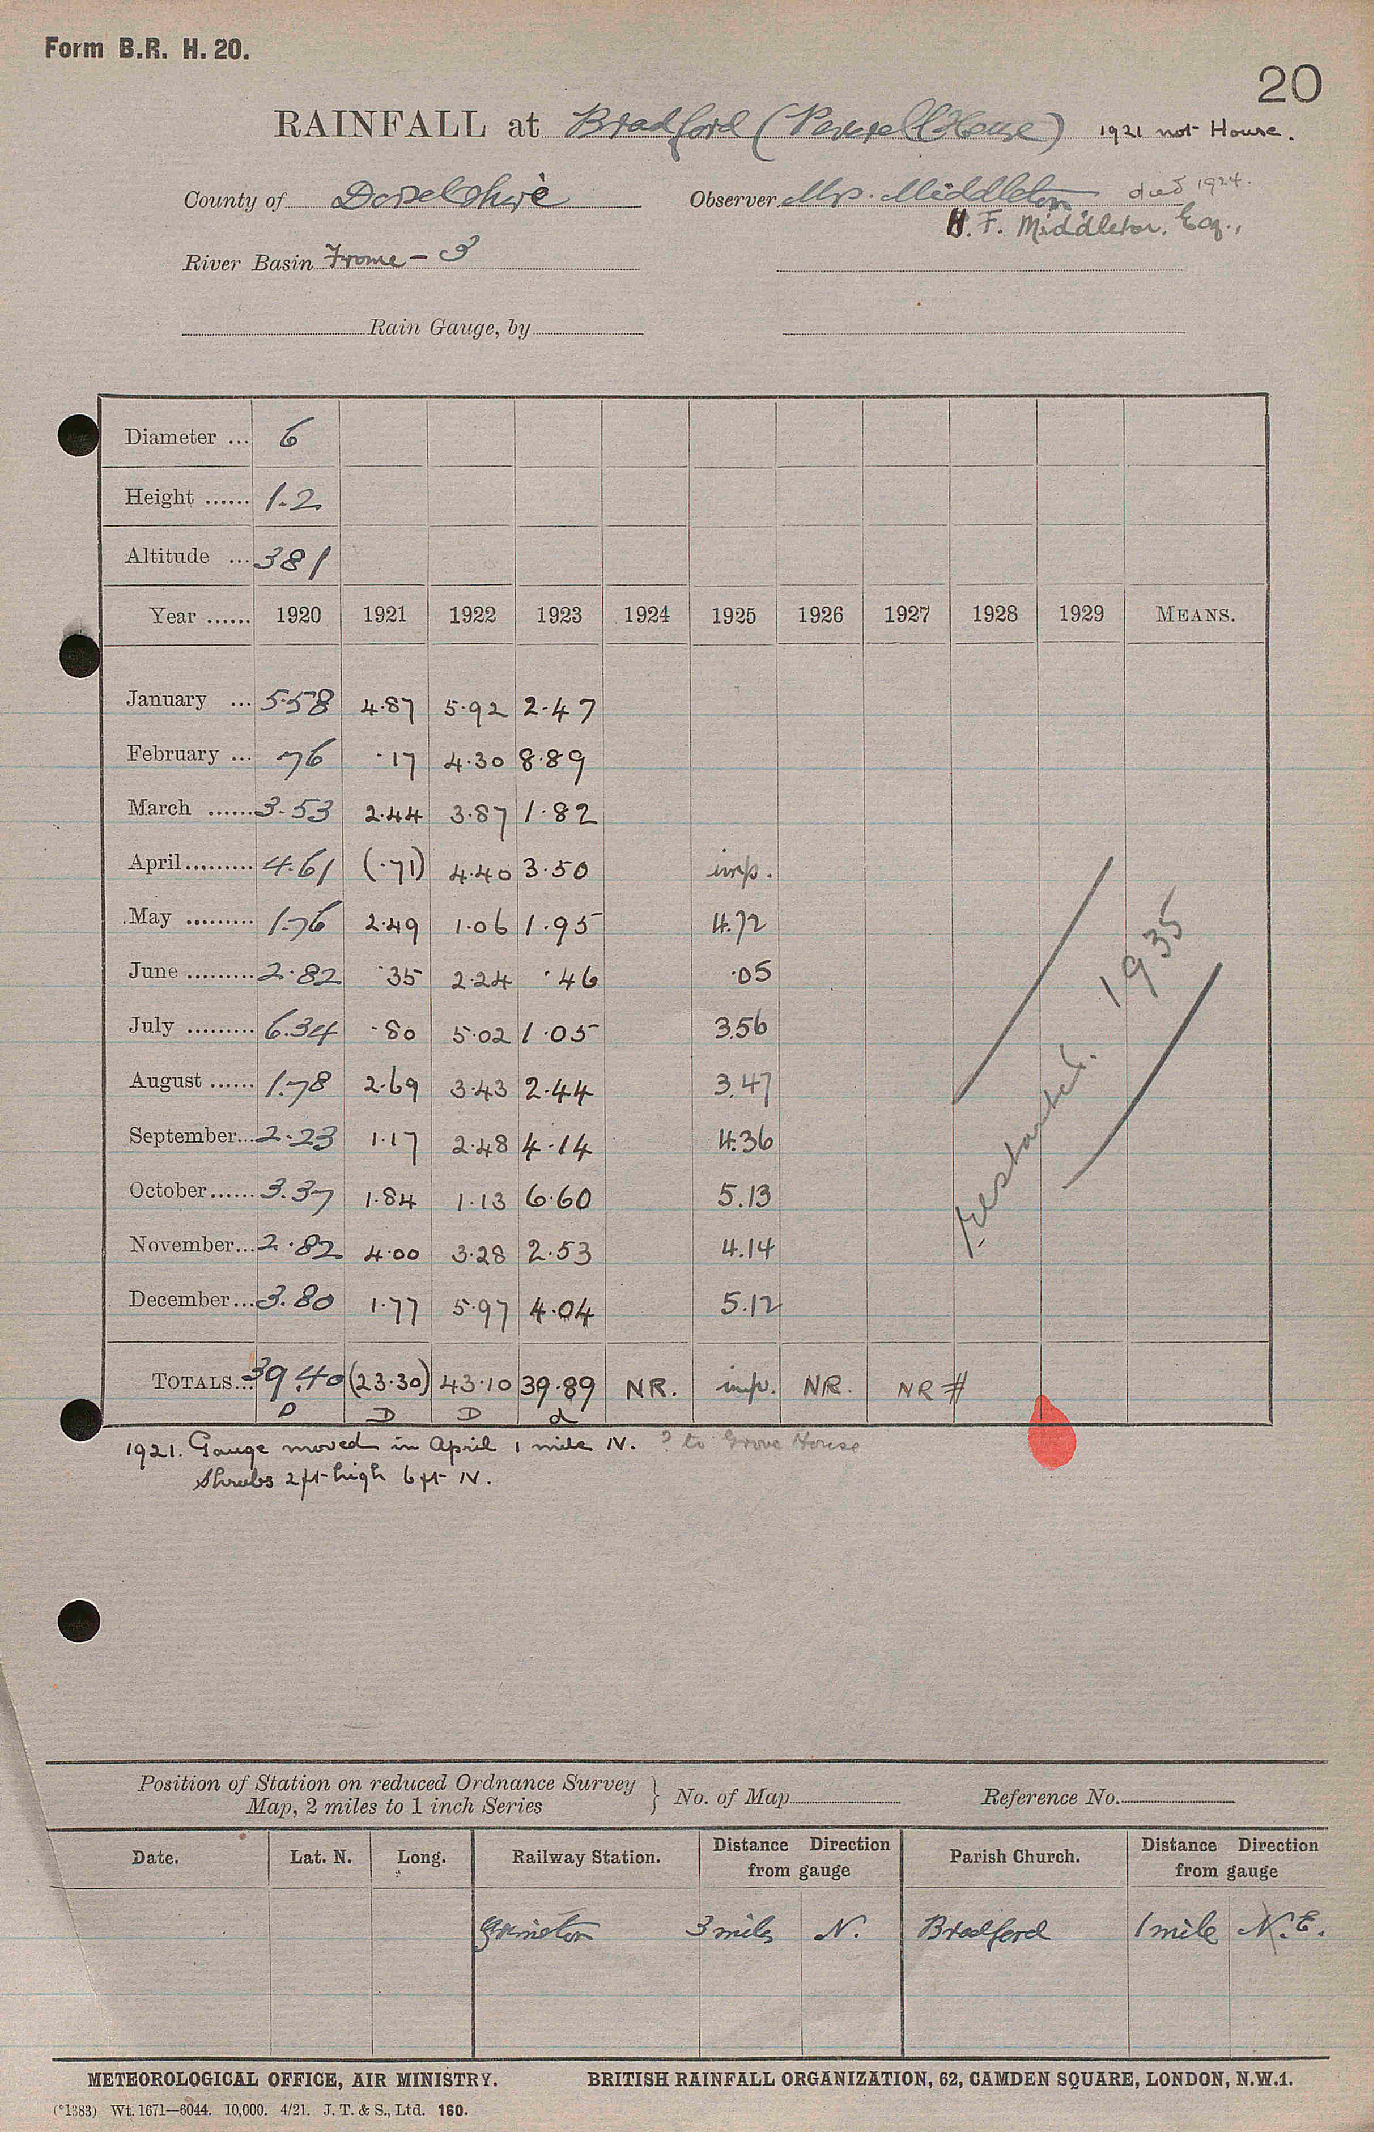 Form B.R. H. 20.
20
RAINFALL at Bradford (Peverell House) 1921 not House.
County of Dorsetshire Observer Mrs. Middleton died 1924.
H. F. Middleton. Esq.,
River Basin Frome - 3
Rain Gauge, by
Diameter ... 6
Height ...... 1.2
Altitude ... 381
Year ...... 1920 1921 1922 1923 1924 1925 1926 1927 1928 1929 MEANS.
January ... 5.58 4.87 5.92 2.47
February ... .76 .17 4.30 8.89
March ...... 3.53 2.44 3.87 1.82
April ......... 4.61 (.71) 4.40 3.50 imp.
May ......... 1.76 2.49 1.06 1.95 4.72
June ......... 2.82 .35 2.24 .46 .05
July ......... 6.34 .80 5.02 1.05 3.56
August ...... 1.78 2.69 3.43 2.44 3.47
September... 2.23 1.17 2.48 4.14 4.36
October...... 3.37 1.84 1.13 6.60 5.13
November... 2.82 4.00 3.28 2.53 4.14
December... 3.80 1.77 5.97 4.04 5.12
restarted. 1935
TOTALS... 39.40 (23.30) 43.10 39.89 NR. imp. NR. NR #
D D D d
1921. Gauge moved in April 1 mile N. ? to Grove House
Shrubs 2ft high 6 ft N.
Position of Station on reduced Ordnance Survey
Map, 2 miles to 1 inch Series } No. of Map Reference No.
Date. Lat. N. Long. Railway Station. Distance Direction from gauge Parish Church. Distance Direction from gauge
Grimston 3 miles N. Bradford 1 mile N.E.
METEOROLOGICAL OFFICE, AIR MINISTRY. BRITISH RAINFALL ORGANIZATION, 62, CAMDEN SQUARE, LONDON, N.W.1.
(*1383) Wt. 1671—6044. 10,000. 4/21. J. T. & S., Ltd. 160.